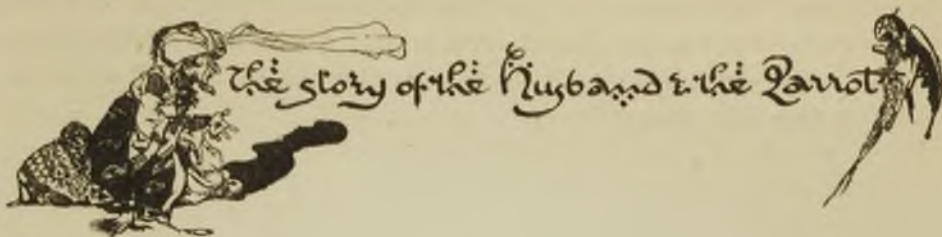 The story of the Husband & the Parrot